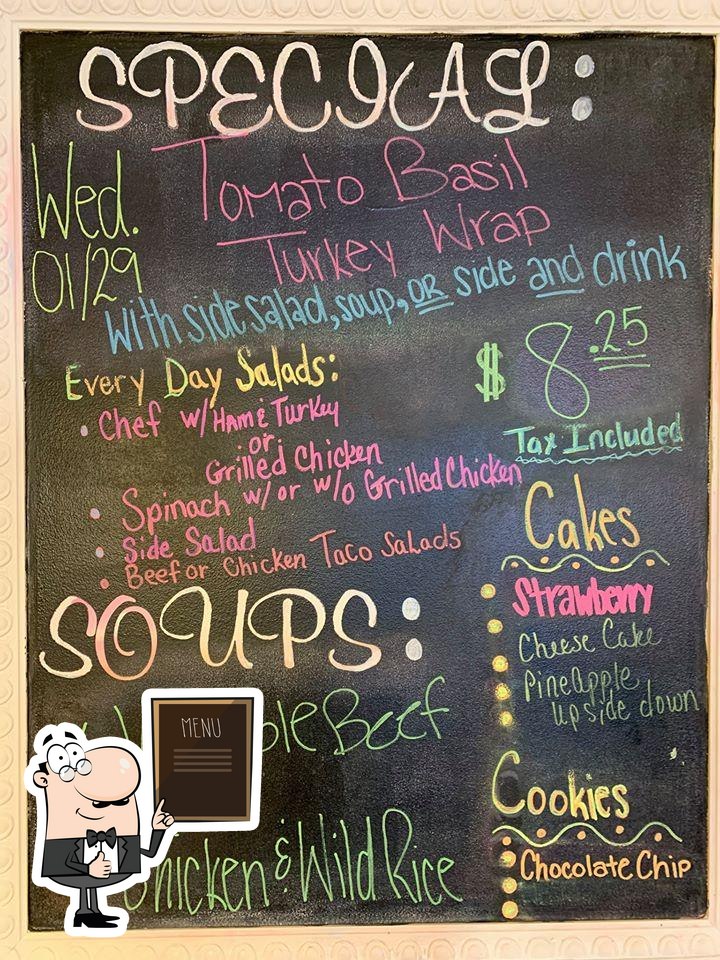 SPECIAL:
Wed.
01/29
Tomato Basil
Turkey Wrap
With side salad, soup, OR side and drink
$8.25
Tax Included
Every Day Salads:
• Chef w/ Ham & Turkey
or
Grilled Chicken
• Spinach w/ or w/o Grilled Chicken
• Side Salad
• Beef or Chicken Taco Salads
Cakes
Strawberry
Cheese Cake
Pineapple
upside down
SOUPS:
Beef
MENU
Chicken & Wild Rice
Cookies
Chocolate Chip